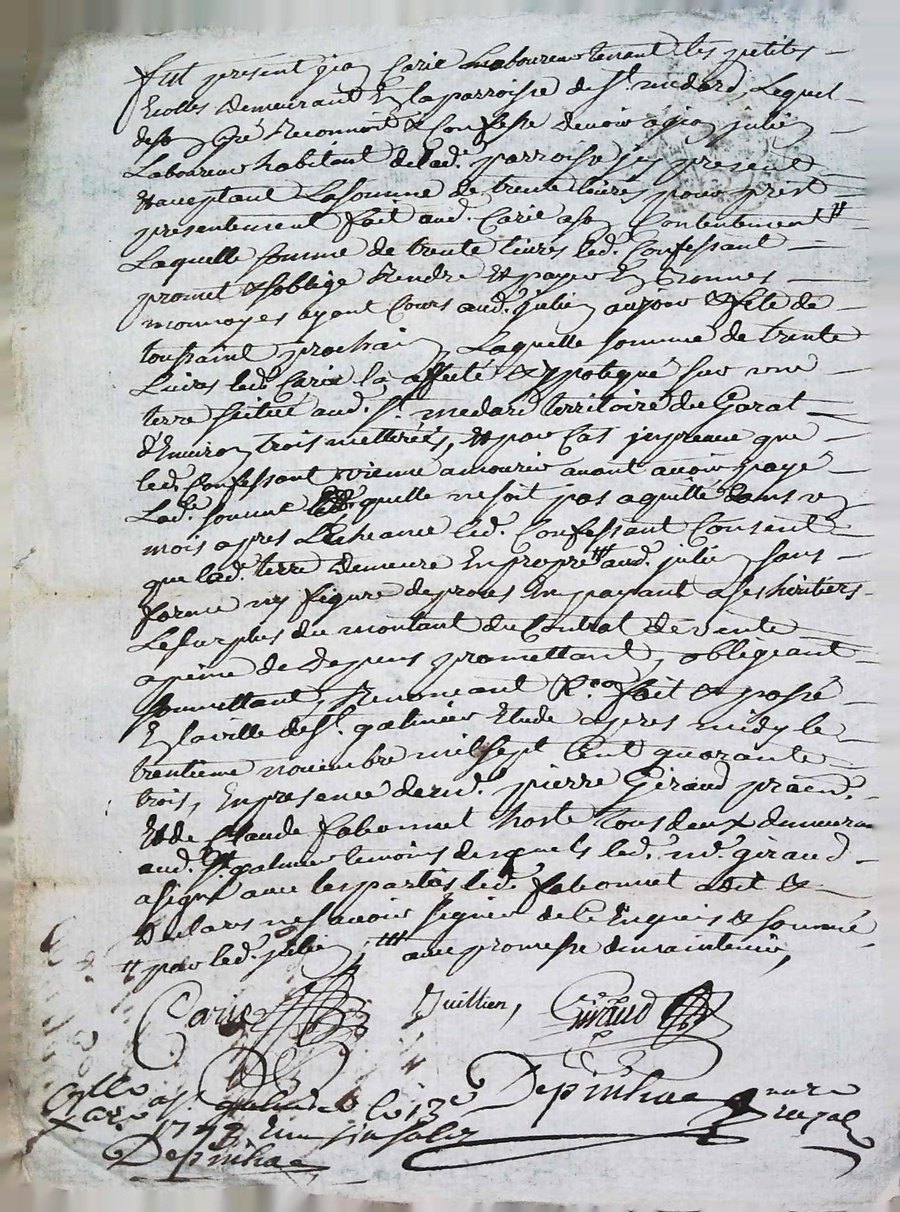 fut present jean Carie Laboureur tenant les petites
Ecolles Demeurant En la parroisse de St. medard, Lequel
de son gré Reconnoit & Confesse devoir a jean julien
Laboureur habitant de lad. parroisse jcy present
Et aceptant La somme de trente livres pour prest
presentement fait aud. Carie a son Contentement
Laquelle somme de trente livres led. Confessant
promet & soblige Rendre Et payer En Bonnes
monnoyes ayant Cours aud. julien au jour & fete de
toussaint prochain, Laquelle somme de trente
Livres led. Carie la affecté & ypotequé sur une
terre scituée aud. St. medard territoire du Garat
d'Environ trois metterées, Et par Cas jmpreveu que
led. Confessant vienne a mourir avant avoir payé
Lad. somme quelle ne soit pas aquittée dans un
mois apres L'Echeance led. Confessant Consent
que lad. terre Demeure En propre aud. julien sans
forme ny figure de proces En payant a ses héritiers
Le surplus du montant du Contrat de vente
a peine de Depens promettant, obligeant
soumettant, Renonceant fait & passé
En la ville de St. galmier Etude apres midy le
trentieme novembre mil sept Cent quarante
trois, En presence de pierre Géraud
Et de Claude fabonnet hoste tous deux demeurant
aud. St. galmier temoins desquels led. giraud
a signé avec les parties led. fabonnet a dit &
Declaré ne scavoir signer de ce Enquis & sommé
par led. julien, avec promesse de maintenir,
Carie Juillien, Giraud
Depinhac
Cllé a St. galmier le 13e
1743
Depinhac